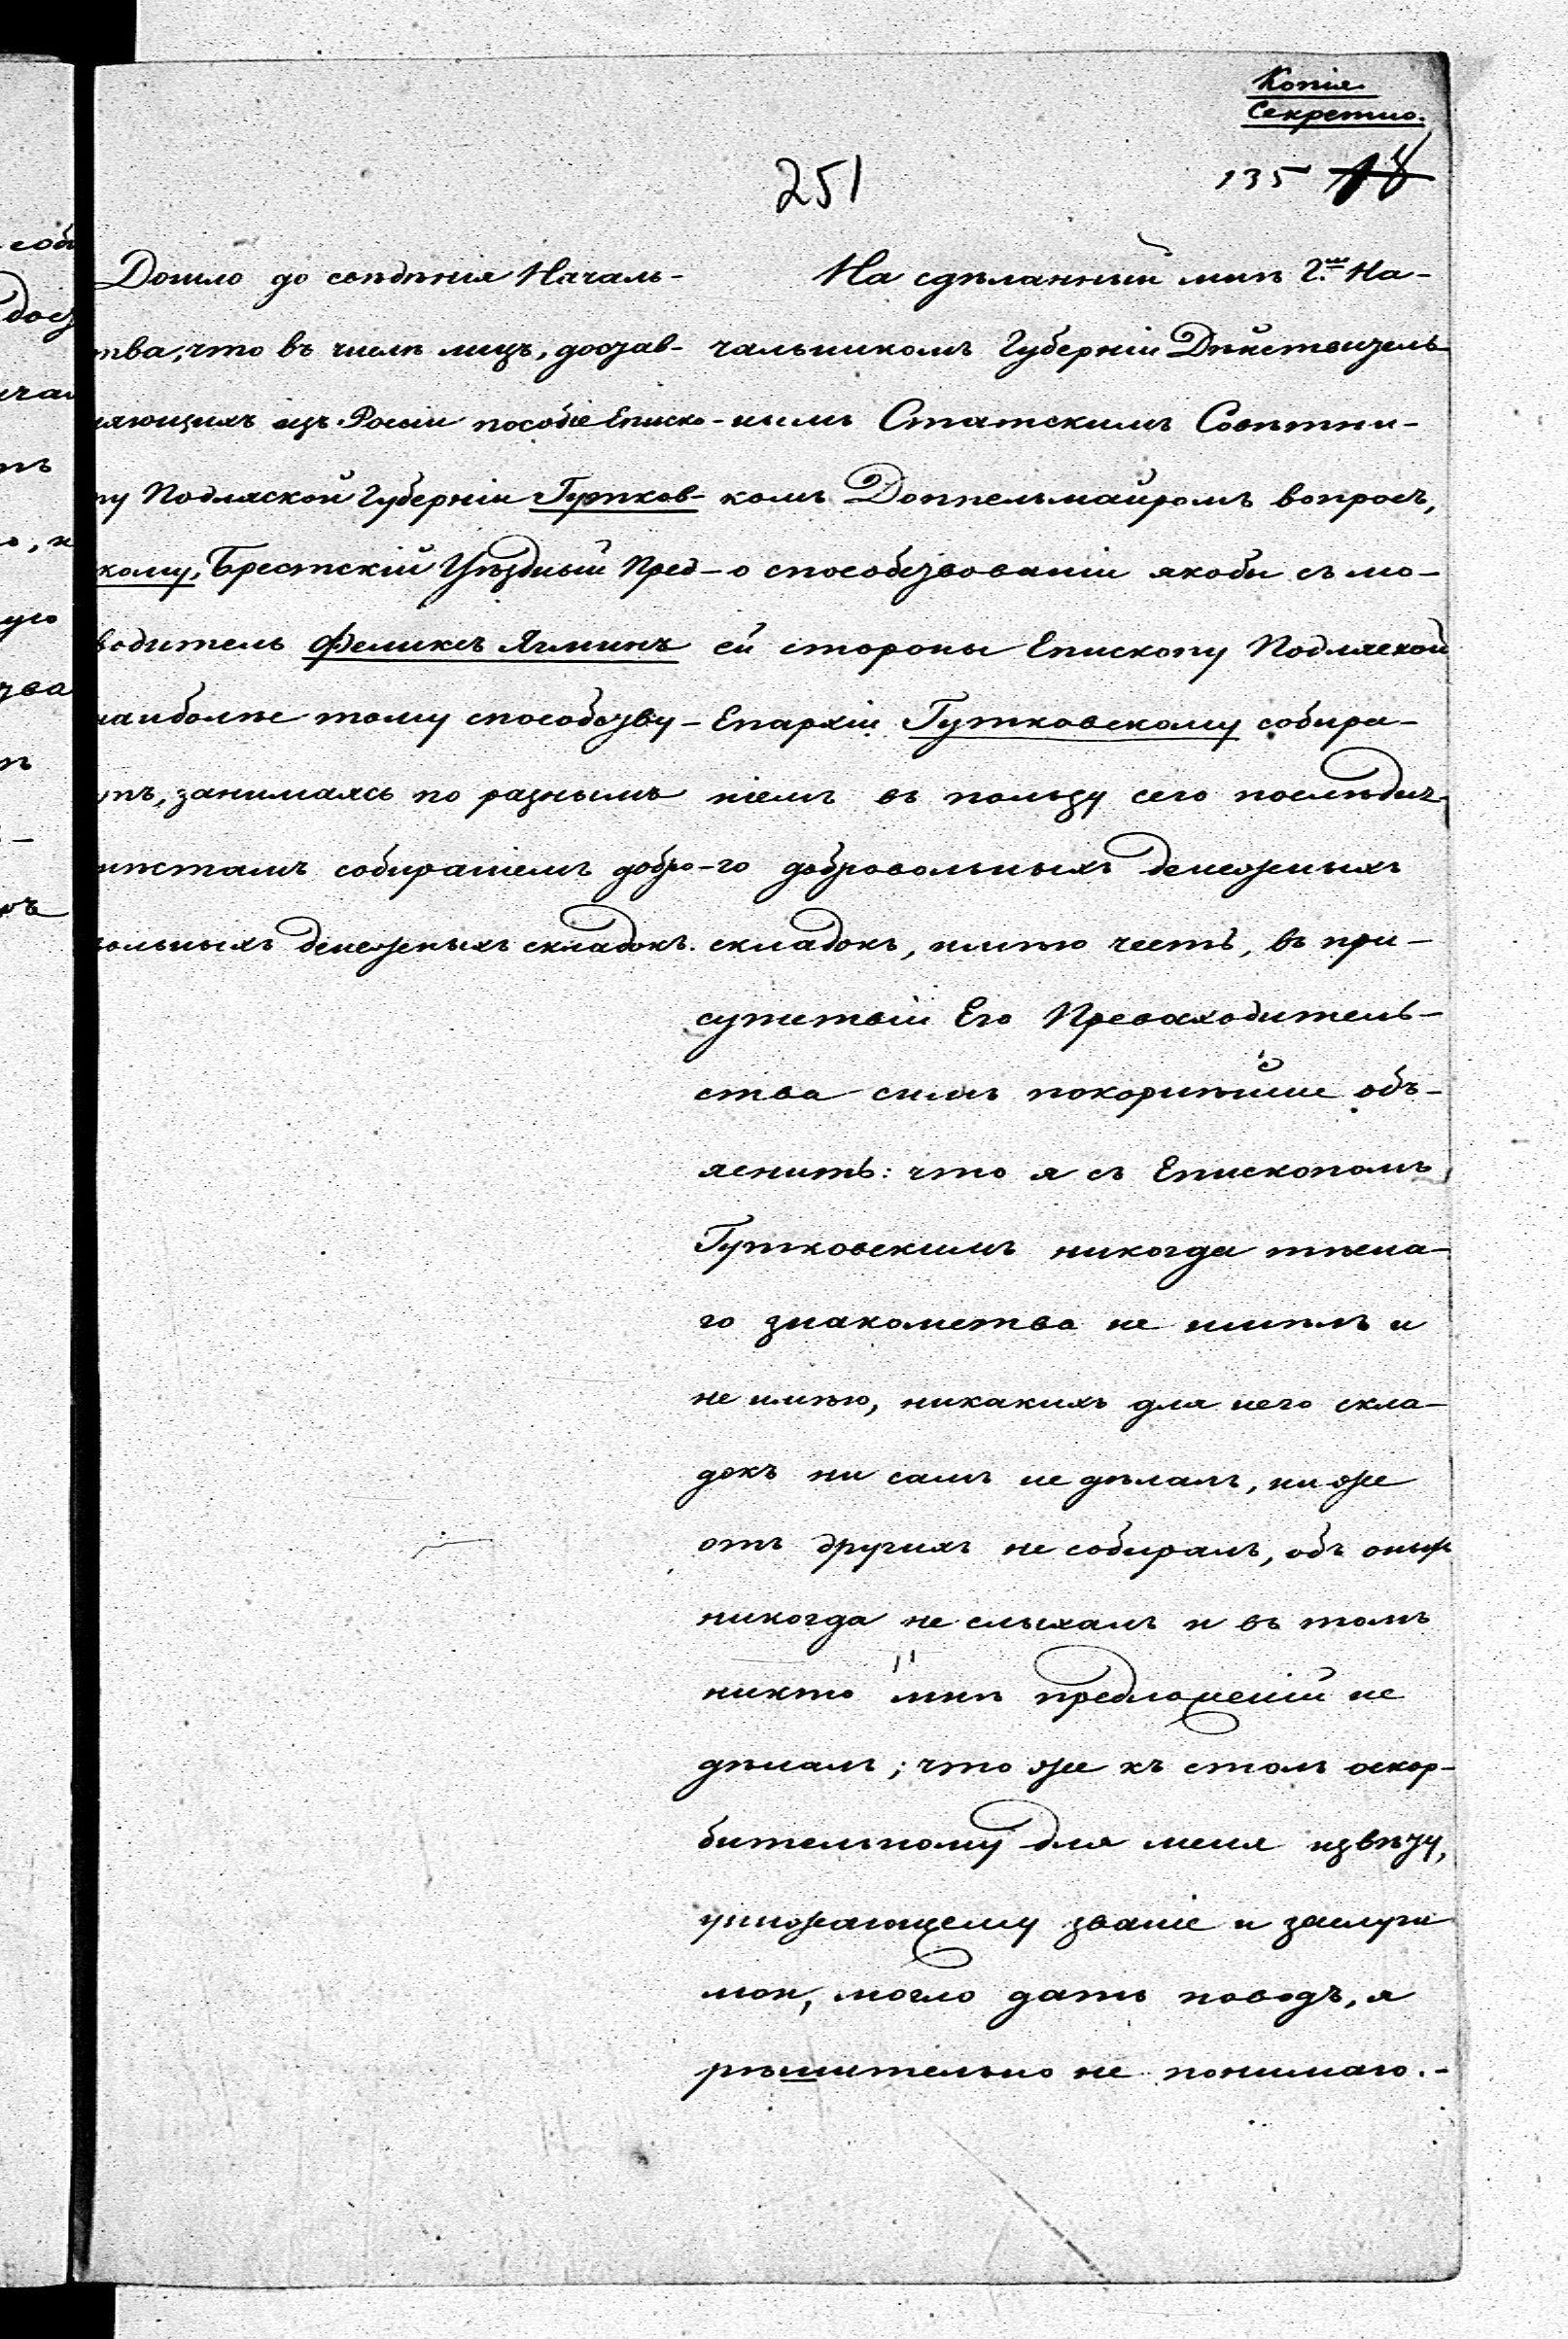 Копія.
Секретно.
251
135 18
Дошло до свѣдѣнія Началь-
тва, что въ числѣ лицъ, достав-
ляющихъ изъ Росіи пособіе Еписко-
пу Подляской Губерніи Гутков-
кому, Брестскій Уѣздный Пред-
водитель Феликсъ Ягминъ
наиболѣе тому способству-
етъ, занимаясь по разнымъ
мѣстамъ собираніемъ добро-
вольныхъ денежныхъ складокъ.
На сдѣланный мнѣ Г.мъ На-
чальникомъ Губерніи Дѣйствитель-
нымъ Статскимъ Совѣтни-
комъ Доппельмайромъ вопросъ,
о способствованіи якобы съ мо-
ей стороны Епископу Подляской
Епархіи Гутковскому собира-
ніемъ въ пользу сего послѣдня-
го добровольныхъ денежныхъ
складокъ, имѣю честь, въ при-
сутствіи Его Превосходитель-
ства симъ покорнѣйше объ-
яснить: что я съ Епископомъ
Гутковскимъ никогда тѣсна-
го знакомства не имѣлъ и
не имѣю, никакихъ для него скла-
докъ ни самъ не дѣлалъ, ниже
отъ другихъ не собиралъ, объ оныхъ
никогда не слыхалъ и въ томъ
никто мнѣ предложеній не
дѣлалъ; что же къ столь оскор-
бительному для меня извѣту,
унижающему званіе и заслуги
мои, могло дать поводъ, я
рѣшительно не понимаю.-